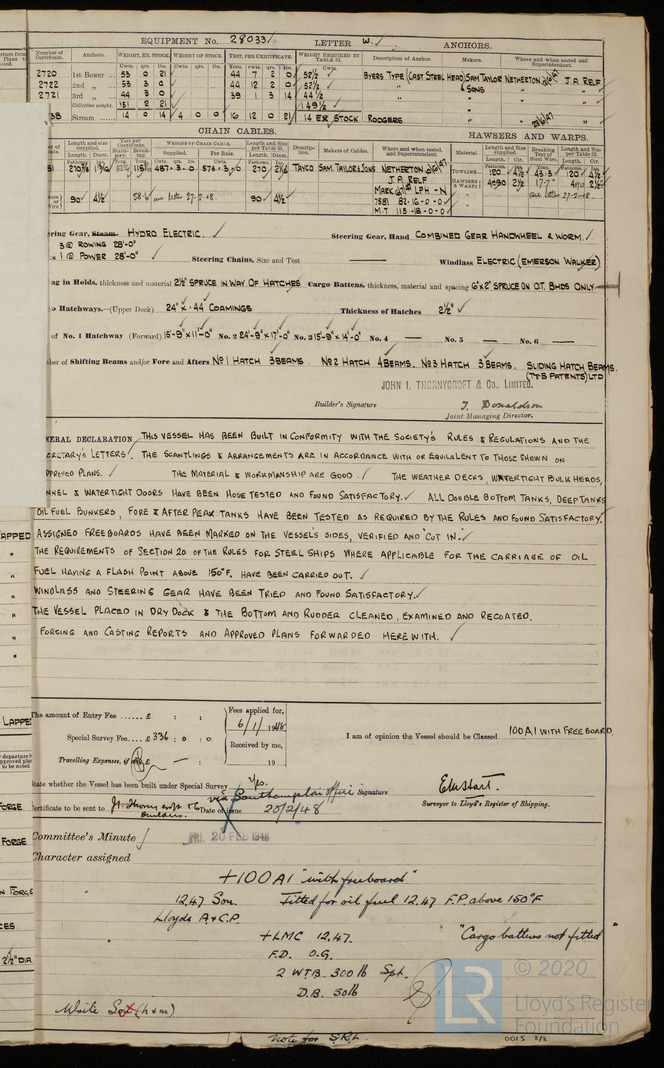 EQUIPMENT No. 28033 LETTER W. ANCHORS.
Number of Certificate. Anchors. WEIGHT, EX. STOCK. WEIGHT OF STOCK. TEST, PER CERTIFICATE. WEIGHT REQUIRED BY TABLE 53. Description of Anchor. Makers. Where and when tested and Superintendent.
2720 1st Bower 53 0 21 44 7 2 0 52½ BYERS TYPE (CAST STEEL HEAD) SAM TAYLOR & SONS NETHERTON J. A. RELF
2722 2nd „ 53 3 0 44 12 2 0 52½ „ „ „
2721 3rd „ 44 3 0 39 1 3 14 44½ „ „ „
Collective weight. 151 2 21 149½
Stream 14 0 14 4 0 0 16 12 0 21 14 EX STOCK RODGERS
CHAIN CABLES. HAWSERS AND WARPS.
Length and size supplied. Test per Certificate. WEIGHT OF CHAIN CABLE. Length and size per Table 53. Description. Makers of Cables. Where and when tested, and Superintendent. Material. Length and Size supplied. Breaking Test of Steel Wire. Length and size per Table 53.
487-3-0 573-3-0 270 TAYCO SAM. TAYLOR & SONS NETHERTON TOWLINE 120 4½ 43.3 120 4½
J. A. RELF HAWSERS & WARPS 4@90 2½ 17.7 4@90 2½
LPH - N
90 4½ 58.6 see letter 27-2-48. 90 4½ 7581 82-16-0-0 see letter 27-2-48
M.T 115-18-0-0
ering Gear, Steam HYDRO ELECTRIC. Steering Gear, Hand COMBINED GEAR HANDWHEEL & WORM.
3 @ ROWING 28'-0"
1 @ POWER 28'-0" Steering Chains, Size and Test Windlass ELECTRIC (EMERSON WALKER)
ng in Holds, thickness and material 2½" SPRUCE IN WAY OF HATCHES Cargo Battens, thickness, material and spacing 6"x2" SPRUCE ON O.T. BHDS ONLY
o Hatchways.—(Upper Deck) 24" x .44 COAMINGS Thickness of Hatches 2½"
of No. 1 Hatchway (Forward) 15'-9"x11'-0" No. 2 24'-9"x17'-0" No. 3 15'-9"x14'-0" No. 4 — No. 5 — No. 6 —
ber of Shifting Beams and/or Fore and Afters No 1 HATCH 3 BEAMS. No 2 HATCH 4 BEAMS. No 3 HATCH 3 BEAMS. SLIDING HATCH BEAMS.
(T&B PATENTS) LTD
JOHN I. THORNYCROFT & Co., LIMITED.
Builder's Signature J. Donaldson
Joint Managing Director.
NERAL DECLARATION THIS VESSEL HAS BEEN BUILT IN CONFORMITY WITH THE SOCIETY'S RULES & REGULATIONS AND THE
CRETARY'S LETTERS. THE SCANTLINGS & ARRANGEMENTS ARE IN ACCORDANCE WITH OR EQUIVALENT TO THOSE SHOWN ON
PPROVED PLANS. THE MATERIAL & WORKMANSHIP ARE GOOD. THE WEATHER DECKS, WATERTIGHT BULKHEADS,
NNEL & WATERTIGHT DOORS HAVE BEEN HOSE TESTED AND FOUND SATISFACTORY. ALL DOUBLE BOTTOM TANKS, DEEP TANKS
OIL FUEL BUNKERS, FORE & AFTER PEAK TANKS HAVE BEEN TESTED AS REQUIRED BY THE RULES AND FOUND SATISFACTORY.
ASSIGNED FREEBOARDS HAVE BEEN MARKED ON THE VESSEL'S SIDES, VERIFIED AND 'CUT IN'.
THE REQUIREMENTS OF SECTION 20 OF THE RULES FOR STEEL SHIPS WHERE APPLICABLE FOR THE CARRIAGE OF OIL
FUEL HAVING A FLASH POINT ABOVE 150°F. HAVE BEEN CARRIED OUT.
WINDLASS AND STEERING GEAR HAVE BEEN TRIED AND FOUND SATISFACTORY.
THE VESSEL PLACED IN DRY DOCK & THE BOTTOM AND RUDDER CLEANED, EXAMINED AND RECOATED.
FORGING AND CASTING REPORTS AND APPROVED PLANS FORWARDED HEREWITH.
The amount of Entry Fee ...... £ : : Fees applied for,
6/1/1948
Special Survey Fee.... £336 : 0 : 0 Received by me, I am of opinion the Vessel should be Classed 100A1 WITH FREEBOARD
Travelling Expenses, if any £ 19
State whether the Vessel has been built under Special Survey Yes.
via Southampton office Signature
Certificate to be sent to Builders. Date of issue 20/2/48 Surveyor to Lloyd's Register of Shipping.
Committee's Minute FRI. 20 FEB 1948
Character assigned
+100A1 "with freeboard"
12.47 Son. Fitted for oil fuel 12.47 F.P. above 150°F
Lloyds A & C.P.
+LMC 12.47. "Cargo battens not fitted
F.D. O.G.
2 WTB. 300 lb Spt.
D.B. 50 lb
Write Son (h+m)
Note for S.R.L.
LR © 2020
Lloyd's Register
Foundation
0015 2/2
LAPPED
LAPPED
FORGE
FORGE
2½" DIA